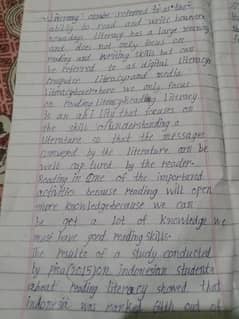 Literacy
ability to read and write however
nowadays literacy has a large meaning
and does not only focus on
reading and writing skills but can
be referred to as digital literacy
computer literacy and media
literacy we only focus
on reading literacy Reading literacy
is an ability that focuses on
the skill of understanding a
literature so that the messages
conveyed by the literature can be
well captured by the reader.
Reading in one of the important
activities because reading will open
more knowledge because we can
get a lot of knowledge we
must have good reading skills.
The results of a study conducted
by pisa (2015) on indonesian students
about reading literacy showed that
indonesia was ranked 64th out of